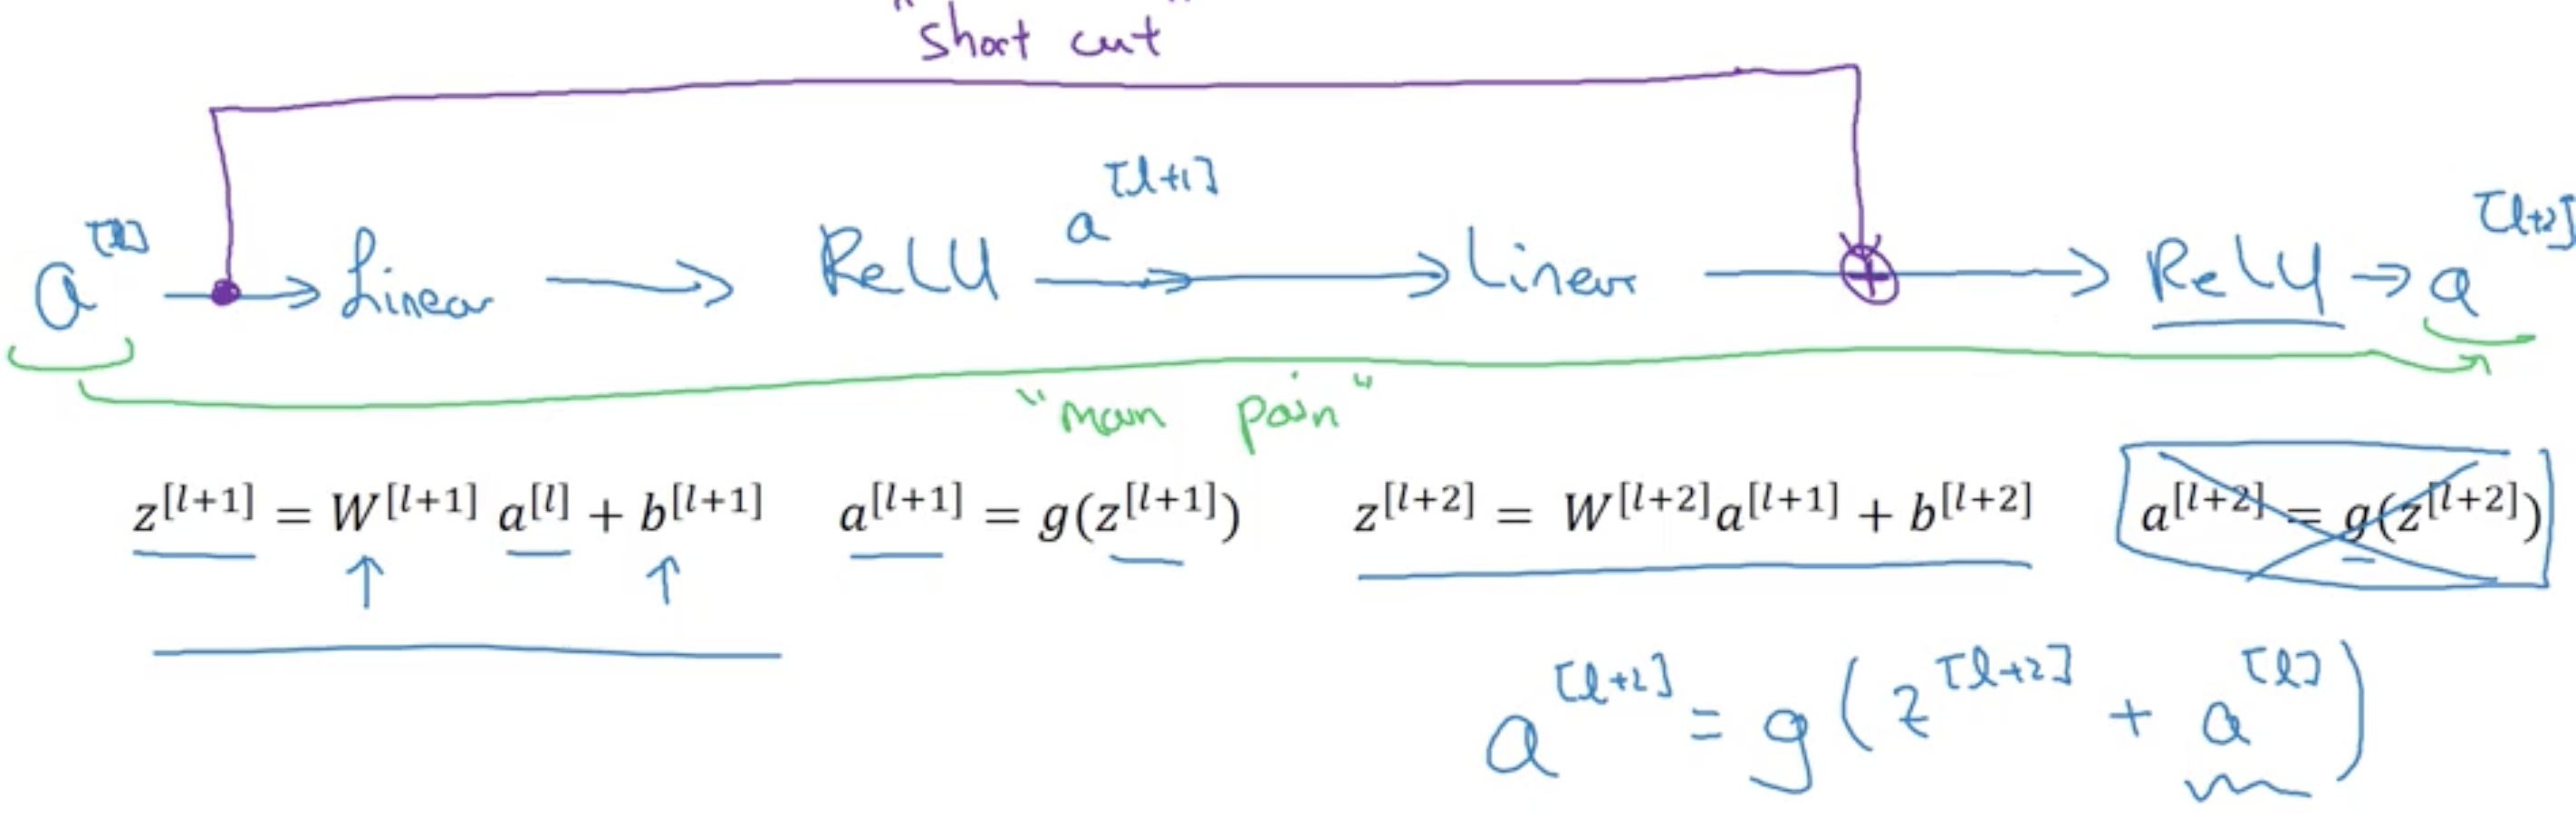 "short cut"
a^[l] → Linear → ReLU a^[l+1] → Linear ⊕ → ReLU → a^[l+2]
"main pain"
z^[l+1] = W^[l+1] a^[l] + b^[l+1] a^[l+1] = g(z^[l+1]) z^[l+2] = W^[l+2] a^[l+1] + b^[l+2] a^[l+2] = g(z^[l+2])
a^[l+2] = g(z^[l+2] + a^[l])